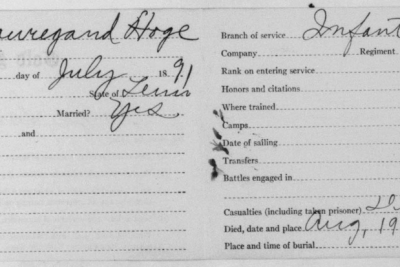 auregand Hoge
day of July 1891
State of Tenn
Married? Yes
and
Branch of service Infant
Company Regiment
Rank on entering service
Honors and citations
Where trained
Camps
Date of sailing
Transfers
Battles engaged in
Casualties (including taken prisoner)
Died, date and place Aug, 19
Place and time of burial